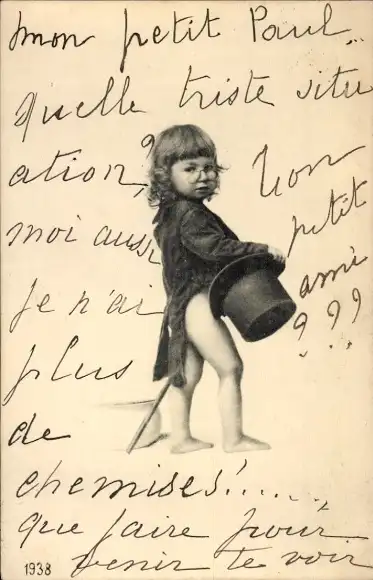 mon petit Paul...
quelle triste situ
ation,
moi aussi
je n'ai
plus
de
chemises!.....
que faire pour
venir te voir
?
Ton
petit
ami
???
1938